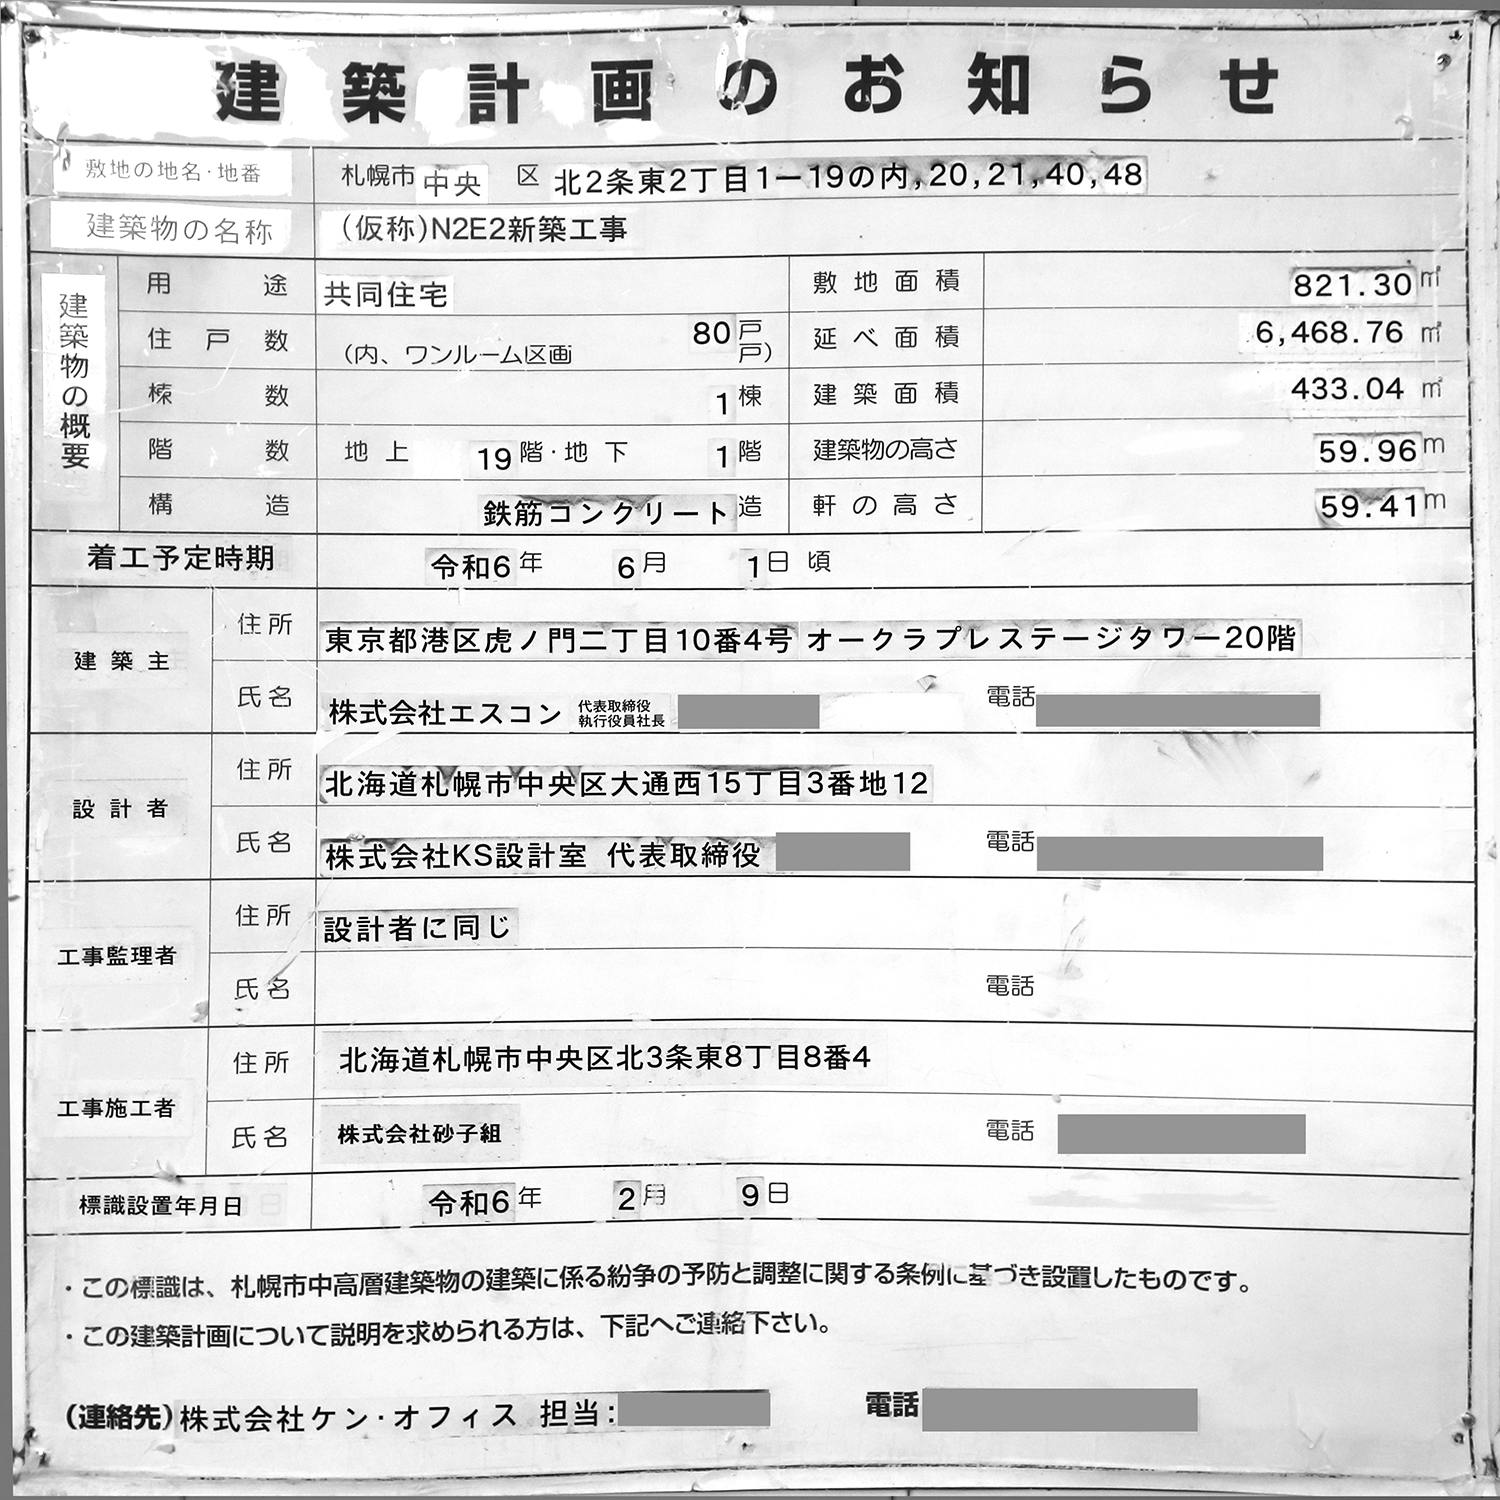 建築計画のお知らせ
敷地の地名・地番 札幌市中央区 北2条東2丁目1ー19の内,20,21,40,48
建築物の名称 (仮称)N2E2新築工事
建築物の概要
用途 共同住宅 敷地面積 821.30㎡
住戸数 80戸 (内、ワンルーム区画 戸) 延べ面積 6,468.76㎡
棟数 1棟 建築面積 433.04㎡
階数 地上 19階・地下 1階 建築物の高さ 59.96m
構造 鉄筋コンクリート造 軒の高さ 59.41m
着工予定時期 令和6年 6月 1日頃
建築主 住所 東京都港区虎ノ門二丁目10番4号 オークラプレステージタワー20階
氏名 株式会社エスコン 代表取締役 執行役員社長 電話
設計者 住所 北海道札幌市中央区大通西15丁目3番地12
氏名 株式会社KS設計室 代表取締役 電話
工事監理者 住所 設計者に同じ
氏名 電話
工事施工者 住所 北海道札幌市中央区北3条東8丁目8番4
氏名 株式会社砂子組 電話
標識設置年月日 令和6年 2月 9日
・この標識は、札幌市中高層建築物の建築に係る紛争の予防と調整に関する条例に基づき設置したものです。
・この建築計画について説明を求められる方は、下記へご連絡下さい。
(連絡先)株式会社ケン・オフィス 担当: 電話